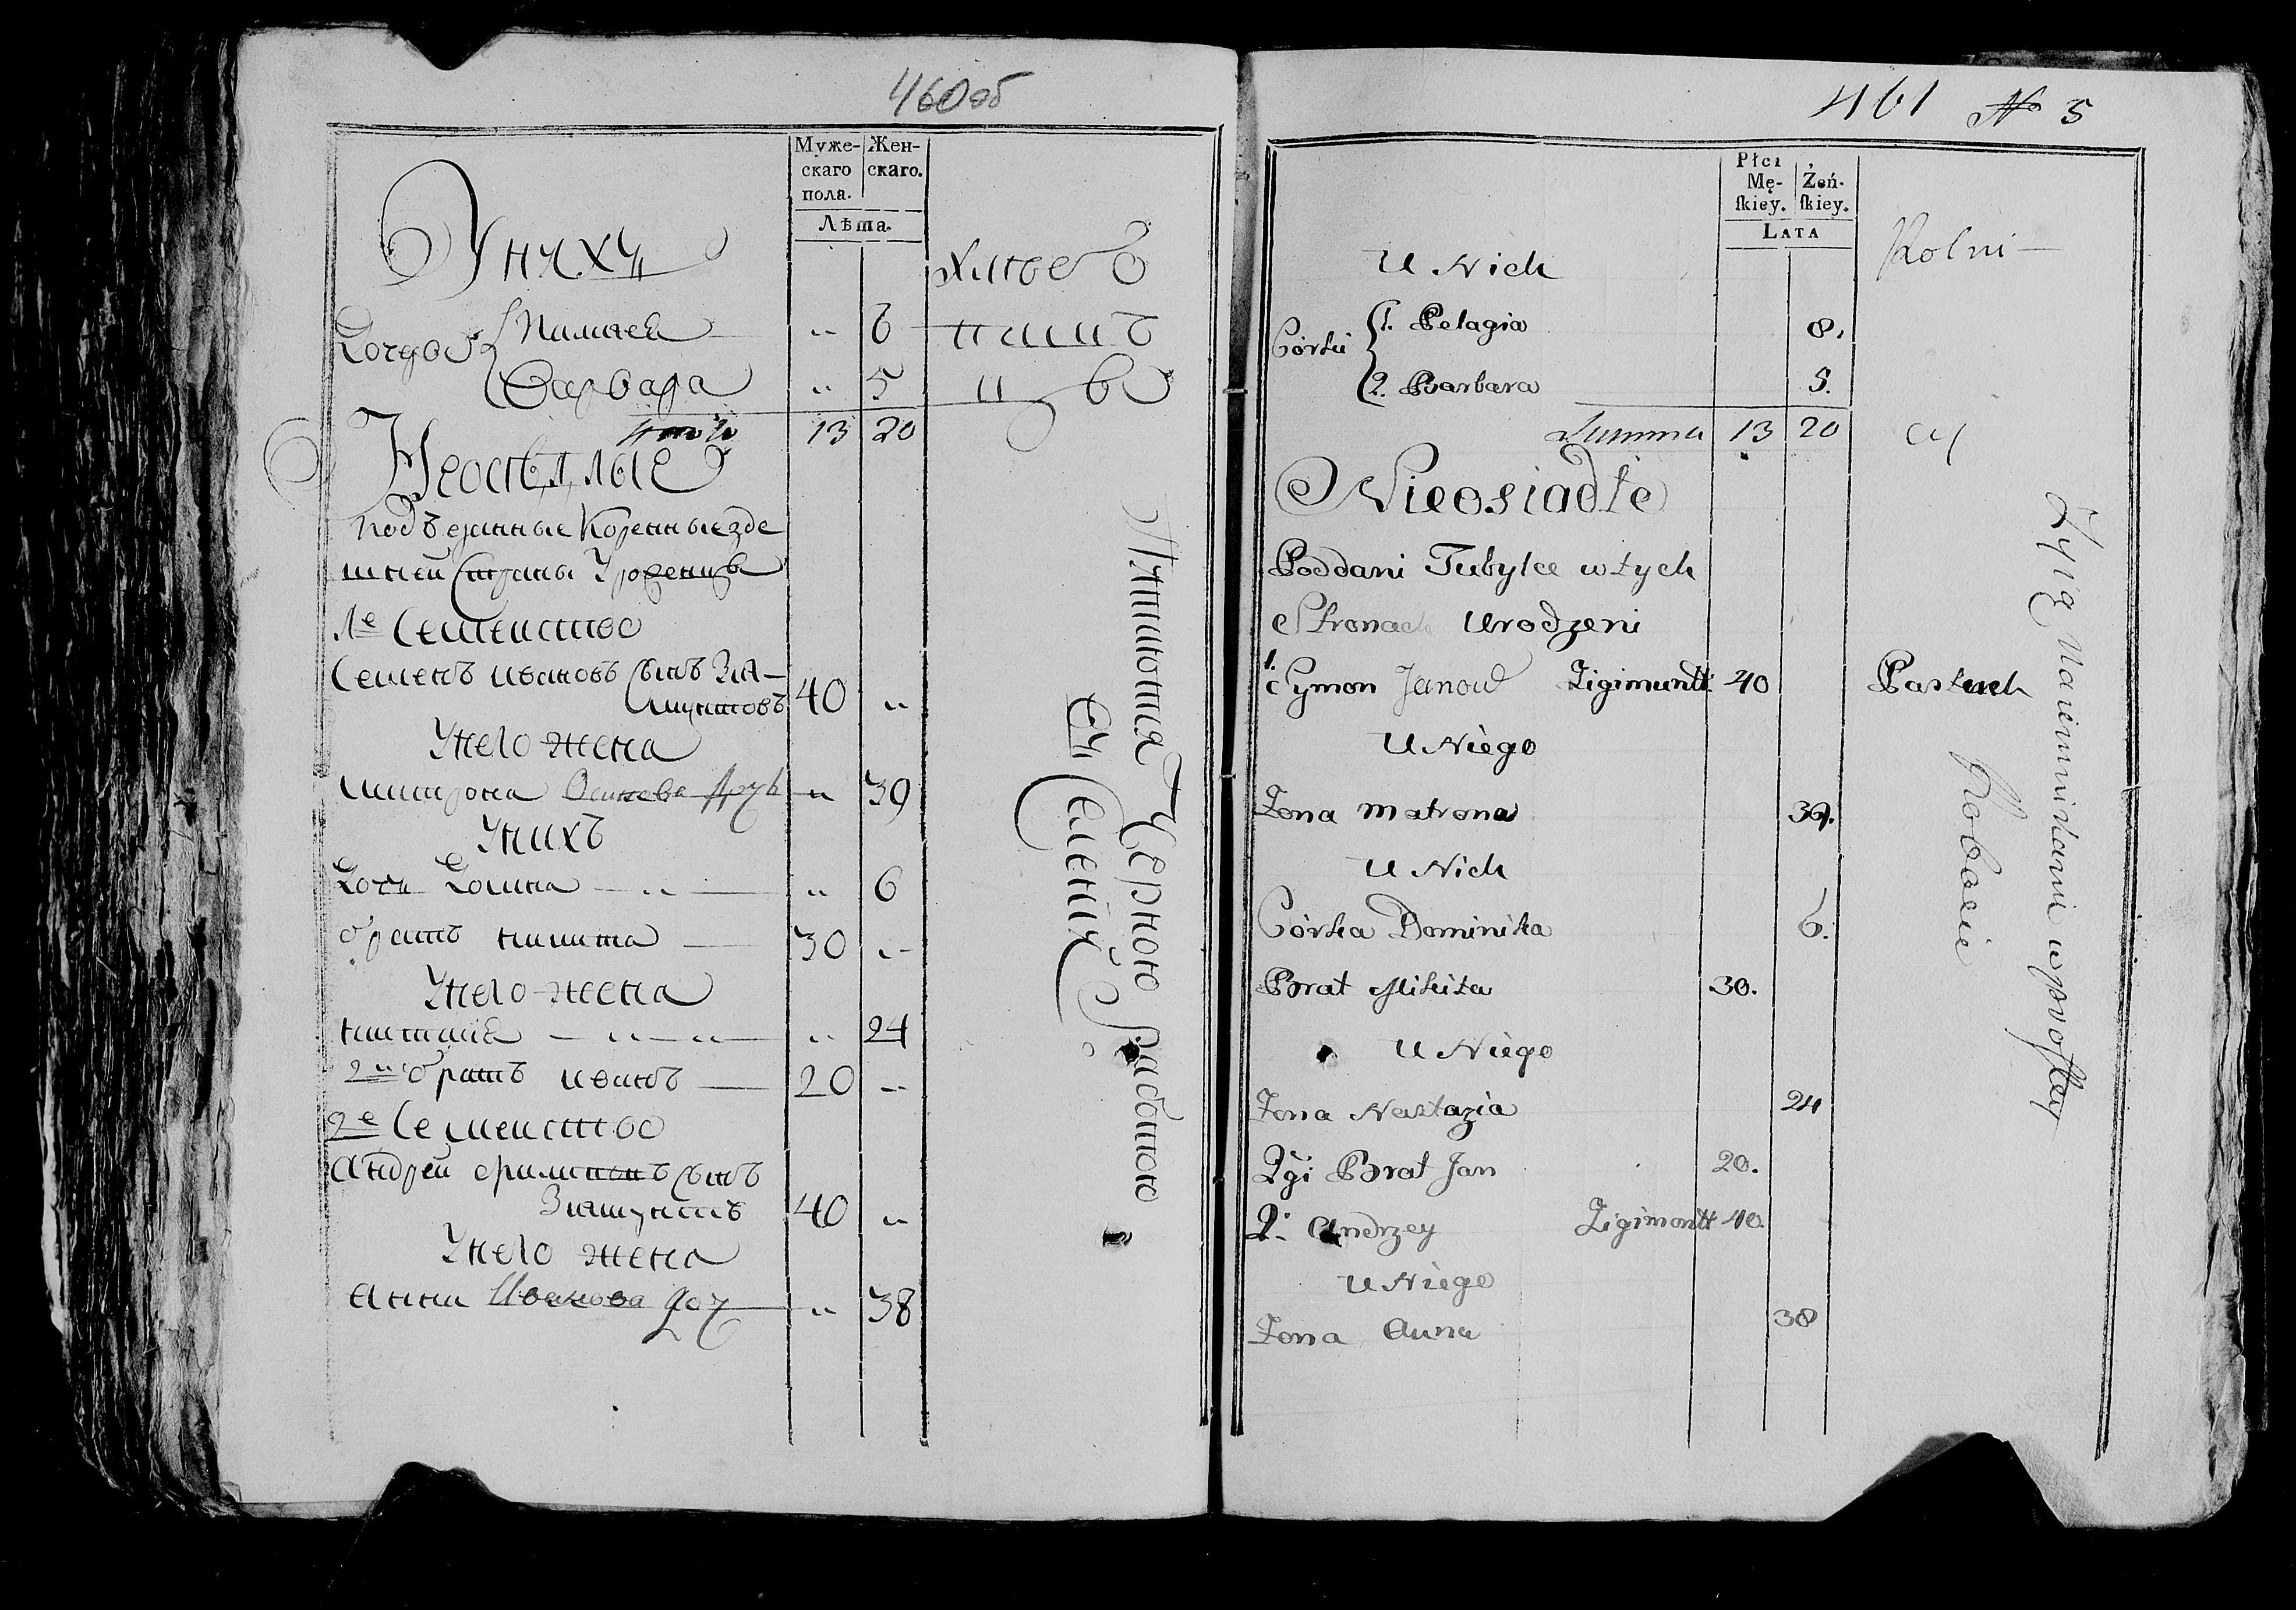 460об
Муже-
скаго
пола.
Жен-
скаго.
Лѣта.
У нихъ
хлѣбо
Дочери
8
паш
Варвара
5
13 20
Неоселлые
Подданные Коренные зде
шней Страны Уроженцы
1е Семейство
Семенъ Ивановъ Сынъ Зиг-
мунтовъ 40
У него жена
Матрона 39
У нихъ
Дочь 6
братъ Никита 30
У него жена
24
2й братъ Иванъ 20
2е Семейство
Андрей Сынъ
Зигмунтъ 40
У него жена
Анна Иванова доч 38
Питаются Черною работою
461 № 5
Płci
Mę-
ſkiey.
Żeń-
ſkiey.
LATA
U Nich
Rolni-
Córki
1. Pelagia 8.
2. Barbara 5.
Summa 13 20
cy
Nieosiadłe
Poddani Tubylce w tych
Stronach Urodzeni
1. Symon Janow Zigimuntt 40 Pastuch
U Niego
Zona Matrona 39.
U Nich
Córka Dominika 6.
Brat Mikita 30.
U Niego
Zona Nastazia 24
2gi Brat Jan 20.
2. Andrzey Zigimontt 40.
U Niego
Zona Anna 38
Żyią
Robocie